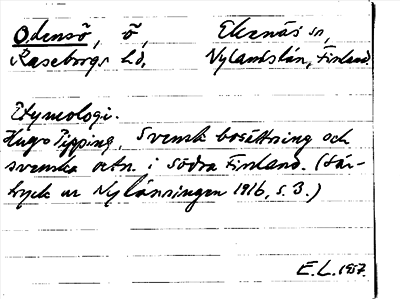 Odensö, ö, Ekenäs sn,
Raseborgs hd, Nylands län, Finland.
Etymologi.
Hugo Pipping, Svensk bosättning och
svenska ortn. i södra Finland. (Sär-
tryck ur Nylänningen 1916, s. 3.)
E.L. 1957.